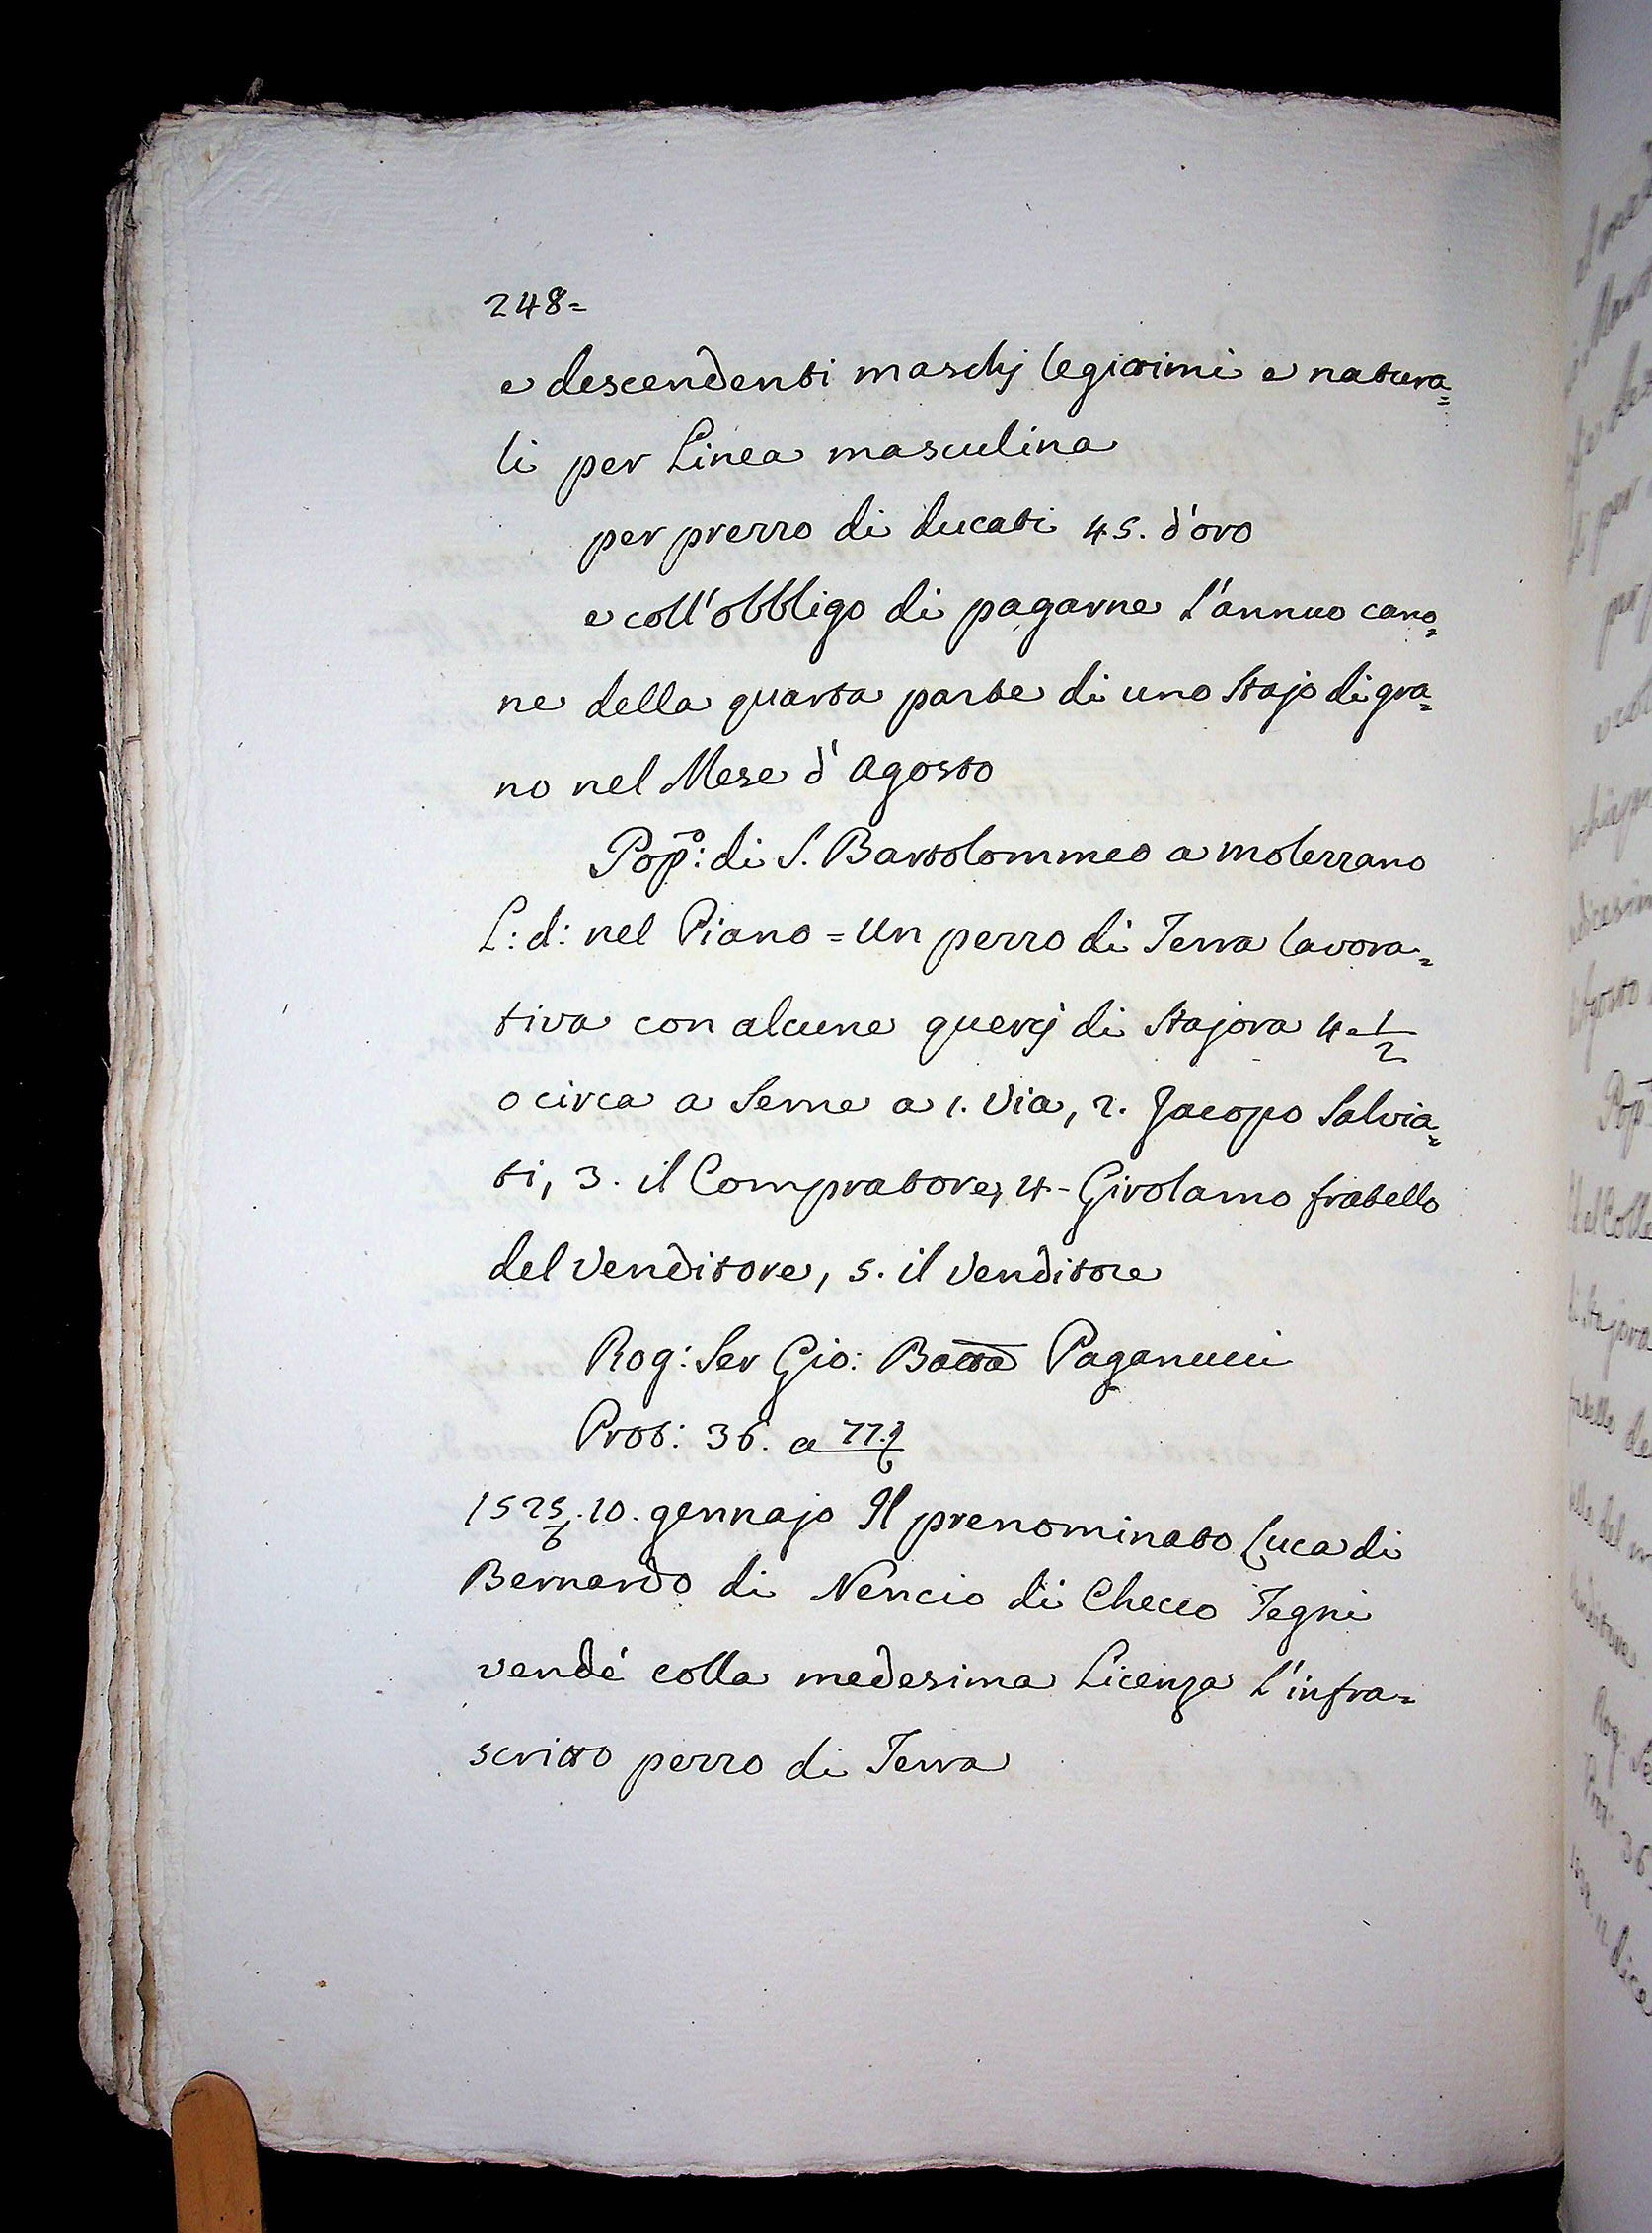 248=
e descendenti maschj legittimi e natura=
li per Linea masculina
per prezzo di ducati 45. d'oro
e coll'obbligo di pagarne l'annuo cano=
ne della quarta parte di uno Stajo di gra=
no nel Mese d'Agosto
Pop⁰: di S. Bartolommeo a Molezzano
L: d: nel Piano = Un pezzo di Terra lavora=
tiva con alcune quercj di Stajora 4 1/2
o circa a Seme a 1. Via, 2. Jacopo Salvia=
ti, 3. il Compratore, 4. Girolamo fratello
del Venditore, 5. il Venditore
Rog: Ser Gio: Batta Paganucci
Prot: 36. a 77.
1525/6. 10. gennajo Il prenominato Luca di
Bernardo di Nencio di Checco Tegni
vendé colla medesima Licenza l'infra=
scritto pezzo di Terra